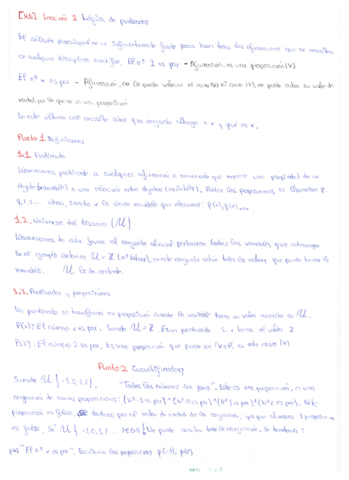 [MD] Lección 2 Lógica de predicados
El cálculo proposicional no es suficientemente fuerte para hacer todas las afirmaciones que se necesitan
en cualquier disciplina científica. El nº 2 es par - Afirmación, es una proposición (V)
El nº x es par - Afirmación, no le puedo valorar el caso (V) ni caso (F), no puedo saber su valor de
verdad, por lo que no es una proposición
En este último caso necesito saber que conjunto x, y qué es x.
Punto 1 Definiciones
1.1. Predicado
Llamaremos predicado a cualquier afirmación o enunciado que exprese una propiedad de un
objeto (variable) o una relación entre objetos (variables). Todas las proposiciones se llamarán P,
q, r, s... siendo x la única variable que interviene: p(x), q(x)...
1.2. Universo del discurso (U)
Llamaremos de esta forma al conjunto al cual pertenecen todas las variables que intervengan
En el ejemplo anterior U = Z (nº enteros), en este conjunto están todos los valores que puede tomar la
variable.
1.3. Predicados y proposiciones
Un predicado se transforma en proposición cuando la variable toma un valor concreto de U.
P(x): El número x es par. Siendo U = Z. Es un predicado, si x toma el valor 2
P(2): El número 2 es par, es una proposición que puede ser V o F, en este caso (V)
Punto 2 Cuantificadores
Siendo U {-1,0,1,2}. "Todos los números son pares". Esto es una proposición, es una
conjunción de varias proposiciones: (nº -1 es par) ^ (nº 0 es par) ^ (nº 1 es par) ^ (nº 2 es par). Esta
proposición es falsa, deduzco por el valor de verdad de las conjunciones, ya que al menos 1 proposición
es falsa. Si U {-1,0,1,... 7864} No puedo escribir toda la conjunción. Se denotará:
p(x) "El nº x es par". Escribimos las proposiciones p(-1), p(0)